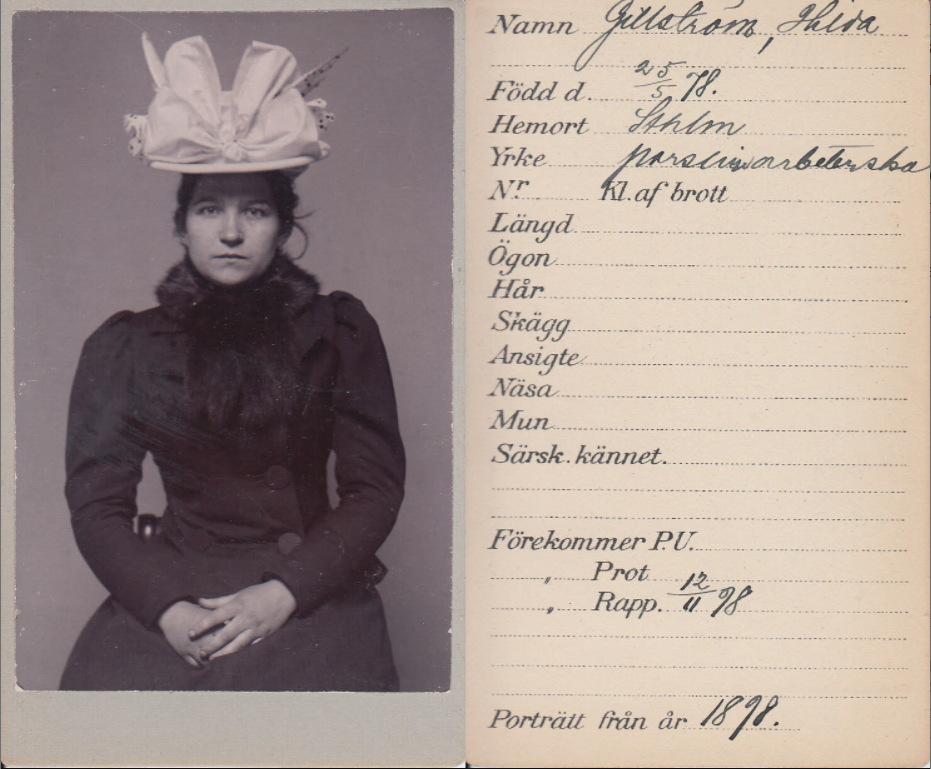 Namn Gillström, Hilda
Född d. 25/5 78.
Hemort Sthlm
Yrke porslinsarbeterska
Nr. Kl. af brott
Längd
Ögon
Hår
Skägg
Ansigte
Näsa
Mun
Särsk. kännet.
Förekommer P.U.
„ Prot
„ Rapp. 12/11 98
Porträtt från år 1898.